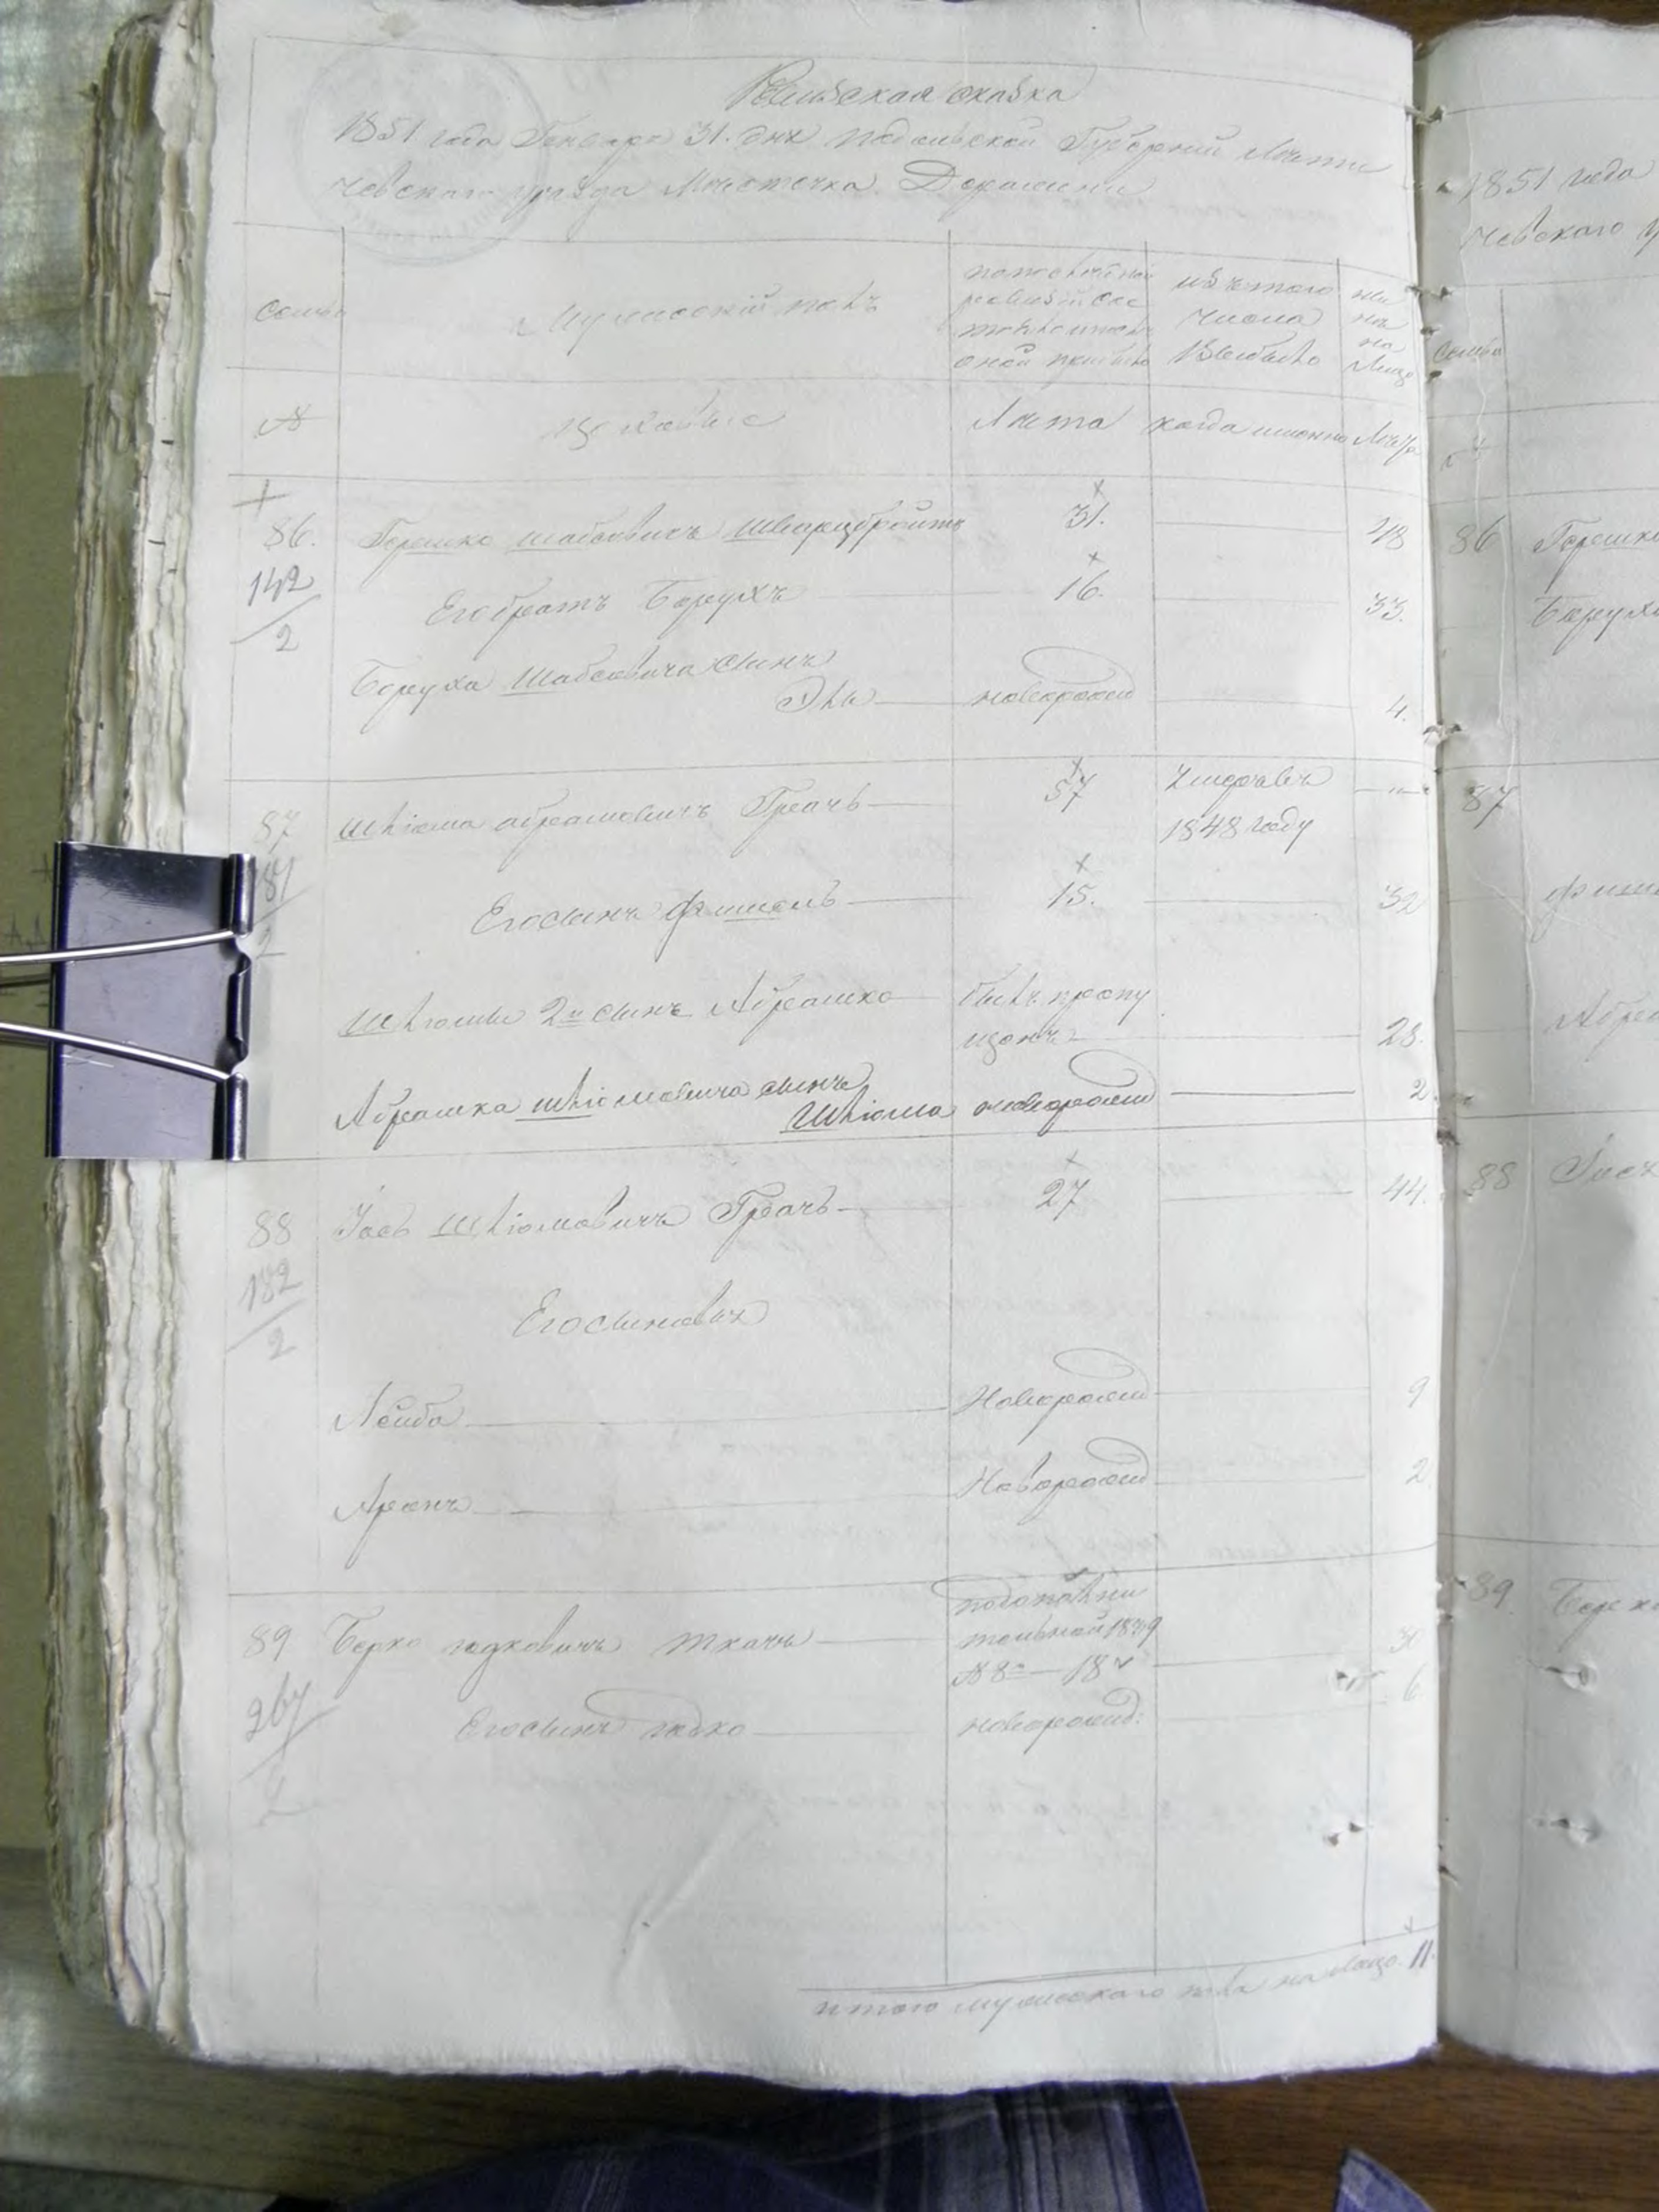 Ревизская сказка
1851 года Генваря 31. дня Подольской Губернии Лити
чевского уезда Местечка Деражни
Семьи
Мужеский полъ
по последней ревизии состояло и после оной прибыло
изъ того числа выбыло
ны не на Лицо
№
Еврей
Лета
когда именно
Лета
86.
142
2
Гершко Шабсовичъ Шварцбройтъ
31.
48
Его братъ Борухъ
16.
33.
Боруха Шабсовича сынъ
новорожд
4.
87
Шлiома Абрамовичъ Грачъ
57
Умеръ въ
1848 году
Его сынъ Фишель
15.
32
Шлiомы 2й сынъ Абрамко
былъ пропу
щенъ
28.
Абрамка Шлiомовича сынъ
Шлiома
новорожд
2
88
182
2
Iось Шлiомовичъ Грачъ
27
44.
Его сыновья
Лейба
Новорожд
9
Аронъ
Новорожд
2
89
267
2
Берко Гедковичъ Ткачъ
по дополни
тельной 1839
№ 8 — 18
30
Его сынъ
новорожд:
6
итого мужескаго пола на лицо. 11.
1851 года
чевского у
Семьи
86
Гершки
Боруха
87
Фише
Абра
88
Iося
89.
Берка